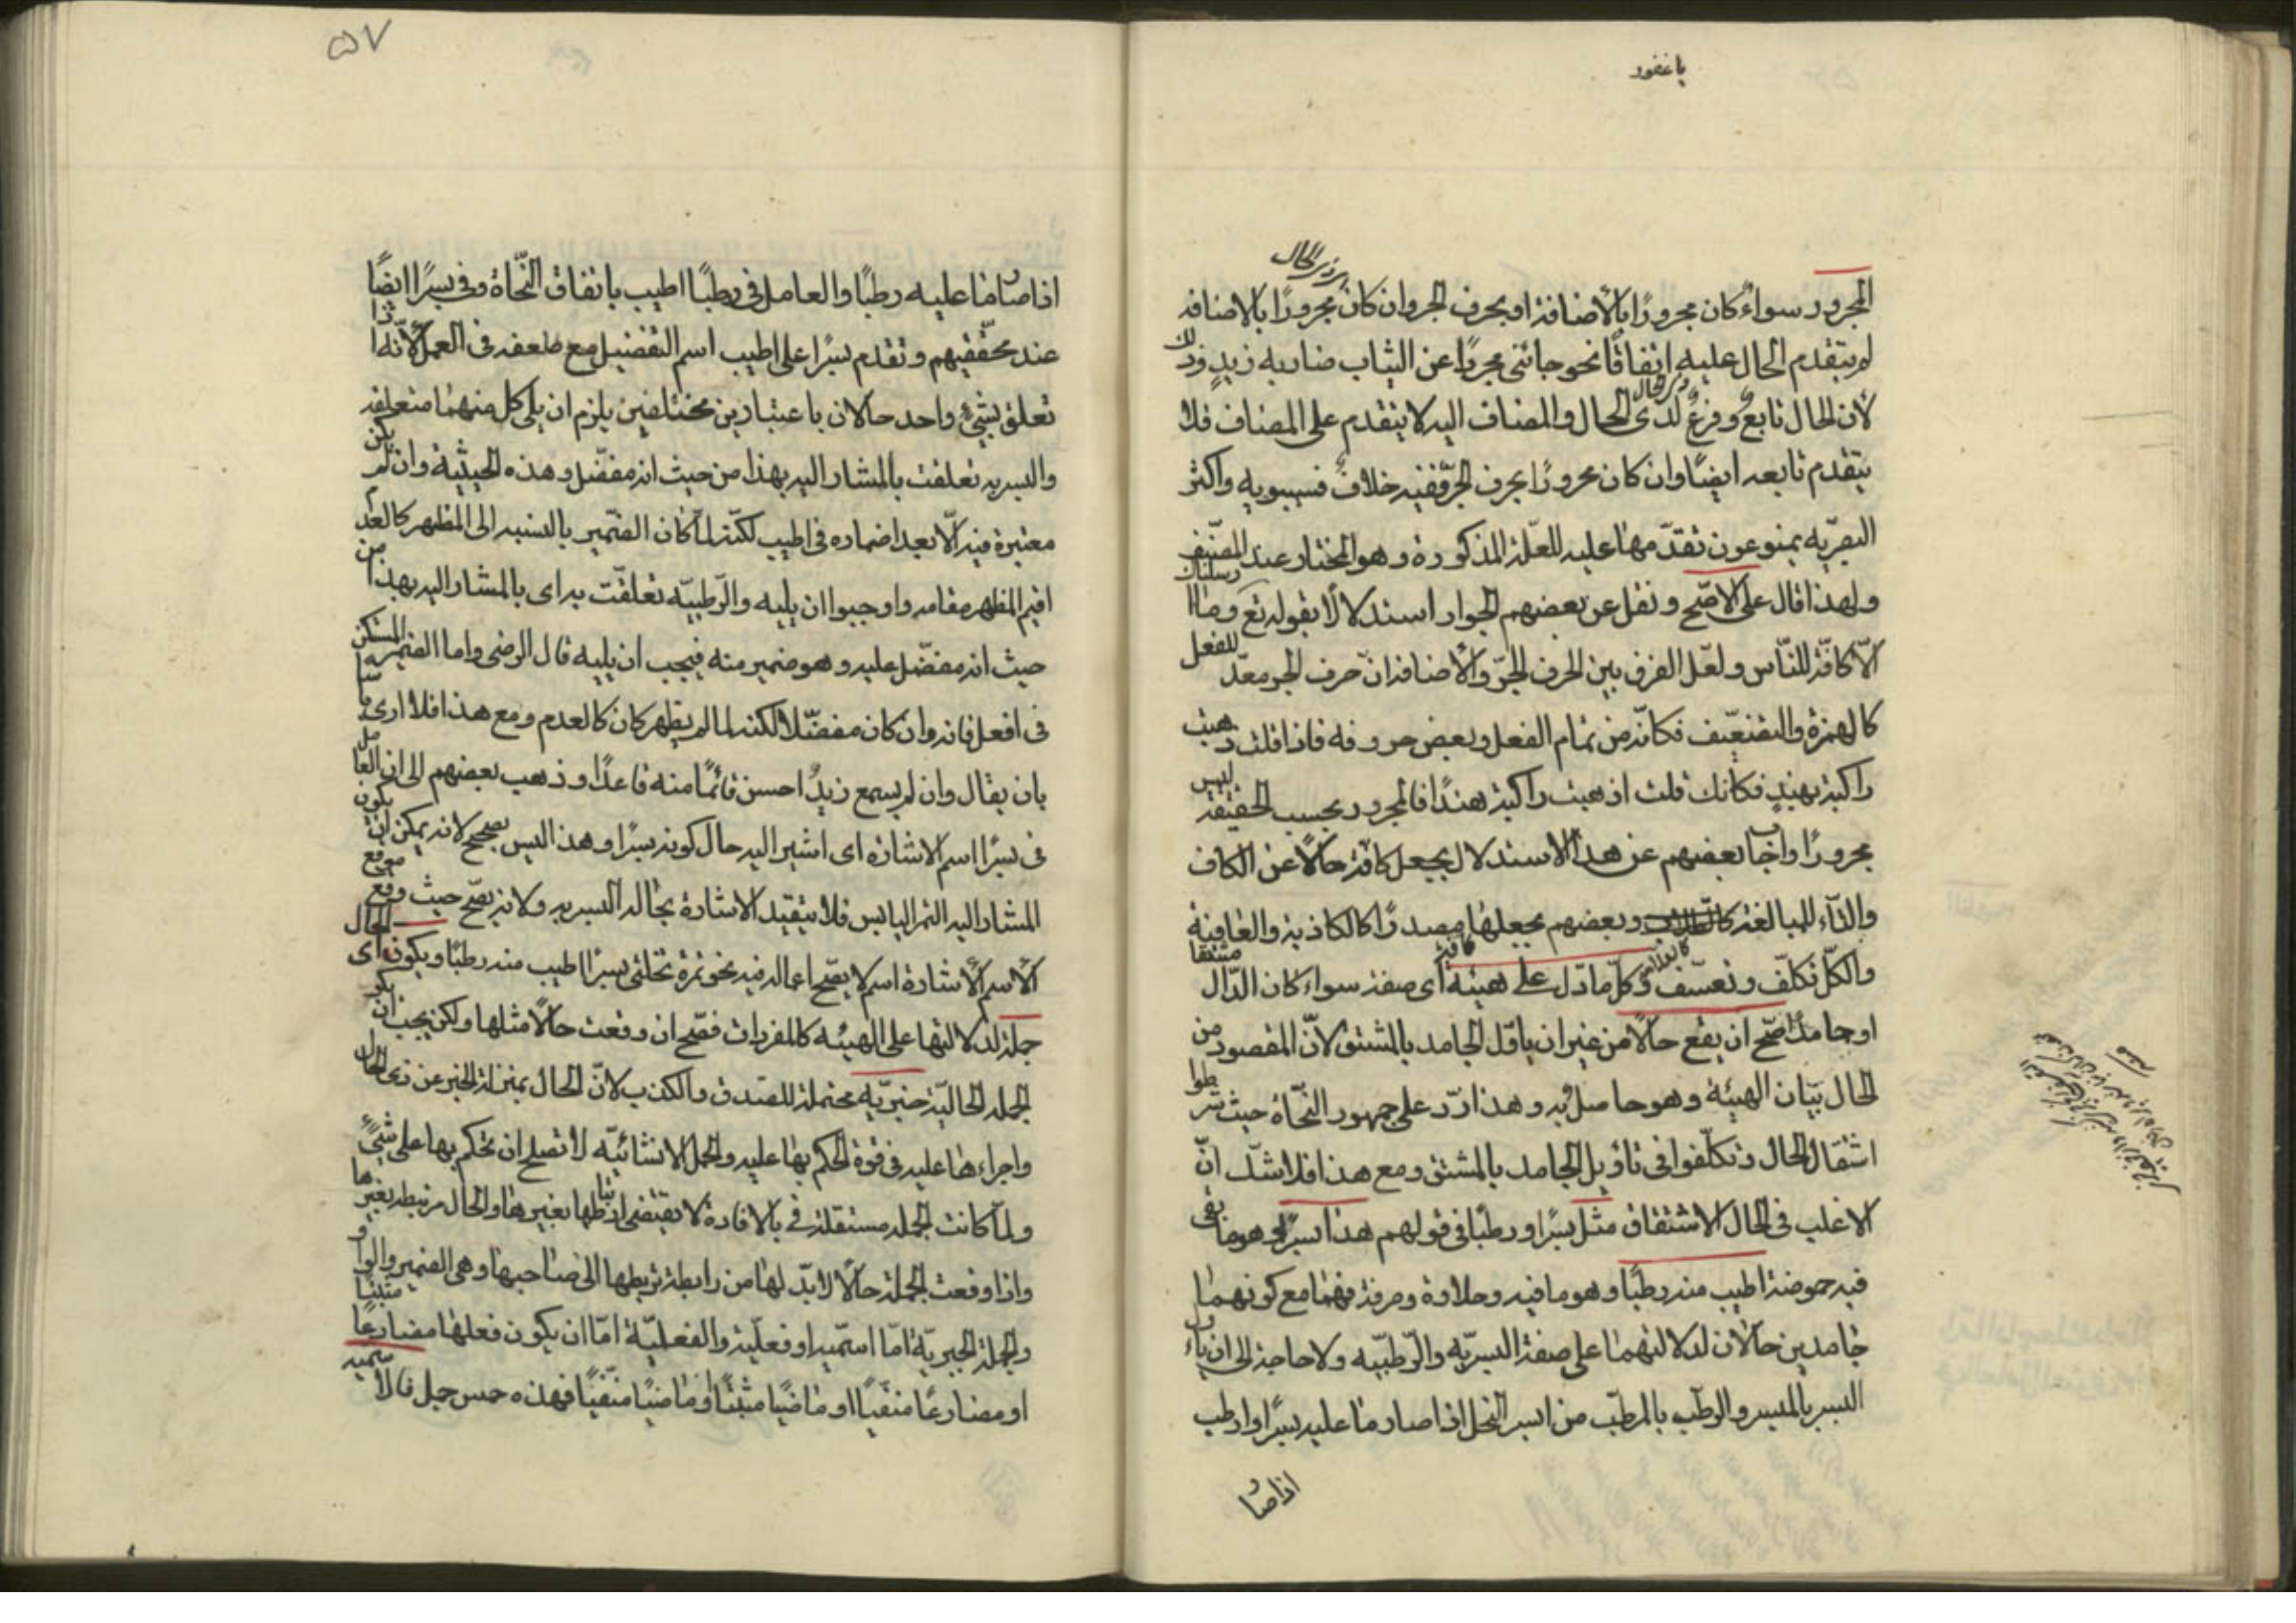 يا غفور
ذى الحال
المجرور سواء كان مجرورًا بالاضافة او بحرف الجر وان كان مجرورًا بالاضافة
لم يتقدم الحال عليه اتفاقًا نحو جائتنى مجردًا عن الثياب ضاربة زيدٍ وذلك
لان الحال تابعٌ وفرعٌ لذى الحال والمضاف اليه لا يتقدم على المضاف فلا
يتقدم تابعه ايضًا وان كان مجرورًا بحرف الجرّ ففيه خلاف فسيبويه واكثر
البصريّه يمنوعون تقدّمها عليه للعلّة المذكورة وهو المختار عند المصنّف
ولهذا قال على الاصّح ونقل عن بعضهم الجواز استدلالًا بقوله تع وما ارسلناك
الّا كافّة للنّاس ولعّل الفرق بين الحرف الجرّ والأضافة انّ حرف الجر معدّ للفعل
كالهمزة والتضعّيف فكانّه من تمام الفعل وبعض حروفه فاذا قلت ذهبت
راكبة بهندٍ فكانك قلت اذهبت راكبة هندًا فالمجرور بحسب الحقيقة ليس
مجرورًا واجاب بعضهم عن هذا الاستدلال بجعل كافّة حالًا عن الكاف
والتّاء للمبالغة وبعضهم بجعلها مصدرًا كالكاذبة والعافية
والكلّ تكلّف وتعسّف وكلّ ما دّل على هيئة اى صفة سواء كان الدّال مشتقا
او جامدًا صّح ان يقع حالًا من غير ان يأوّل الجامد بالمشتق لانّ المقصود من
الحال بيّان الهيئة وهو حاصل به وهذا ردّ على جمهور النحّاة حيث شرطوا
اشتقاق الحال وتكلّفوا فى تاويل الجامد بالمشتق ومع هذا فلا شكّ انّ
الاغلب فى الحال الاشتقاق مثل بسرًا ورطبًا فى قولهم هذا بسرًا وهو ما بقى
فيه حموضة اطيب منه رطبًا وهو ما فيه حلاوة صرفة فهما مع كونهما
جامدين حالان لدلالتهما على صفة البسريّه والرّطبيّه ولا حاجة الى ان ياول
البسر بالمبسر والرطب بالمرطّب من ابسر النخل اذا صار ما عليه بسرًا وارطب
اذا صار
۵۷
اذا صار ما عليه رطبًا والعامل فى رطبًا اطيب باتفاق النّحاة وفى بسرًا ايضًا
عند محقّقيهم وتقدم بسرًا على اطيب اسم التفضيل مع ضعفه فى العمل لأنّه اذا
تعلق بشيءٍ واحد حالان باعتبارين مختلفين يلزم ان يلى كل منهما متعلقه
والبسريه تعلقت بالمشار اليه بهذا من حيث انه مفضّل وهذه الحيثية وان لم يكن
معتبرة فيه الّا بعد اضماره فى اطيب لكنّه لمّا كان الضّمير بالنسبه الى المظهر كالعدم
اقيم المظهر مقامه واوجبوا ان يليه والرّطبيّه تعلقّت به اى بالمشار اليه بهذا من
حيث انه مفضّل عليه وهو ضمير منه فيجب ان يليه قال الرضى واما الضمير المستكن
فى افعل فانه وان كان مفضّلًا لكنه لما لم يظهر كان كالعدم ومع هذا فلا ارى باسا
بان يقال وان لم يسمع زيدٌ احسن قائمًا منه قاعدًا وذهب بعضهم الى ان العامل
فى بسرًا اسم الاشارة اى اشير اليه حال كونه بسرًا وهذا ليس بصحيح لانه يمكن ان يكون
المشار اليه التمر اليابس فلا يتقيد الاشارة بحال البسريه ولانه يصّح حيث وقع موقع
الاسم الأشارة اسم لا يصّح اعماله فيه نحو ثمرة نخلتى بسرًا اطيب منه رطبًا ويكون اى الحال
جملة لدلالتها على الهيئه كالمفردات فصّح ان وقعت حالًا مثلها ولكن يجب ان يكون
الجمله الحاليّة خبريّه محتملة للصّدق والكذب لانّ الحال بمنزلة الخبر عن ذى الحال
واجراءها عليه فى قوة الحكم بها عليه والجمل الانشائيّه لا تصلح ان تحكم بها على شئٍ
ولمّا كانت الجمله مستقلة فى الافادة لا يقتضى ارتباطها بغيرها والحال مرتبطة بغيرها
واذا وقعت الجملة حالًا لابدّ لها من رابطة تربطها الى صاحبها وهى الضمير والواو
والجملة الخبريّة امّا اسميّه او فعليّة والفعليّة امّا ان يكون فعلها مضارعًا مثبتا
او مضارعًا منفيًا او ماضيًا مثبتًا او ماضيًا منفيًا فهذه خمس جمل فالاسميه